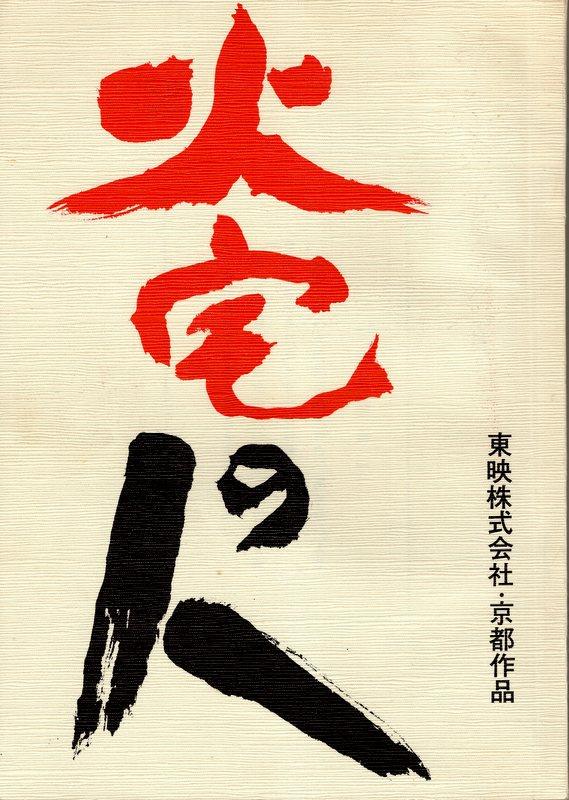 火宅の人
東映株式会社・京都作品